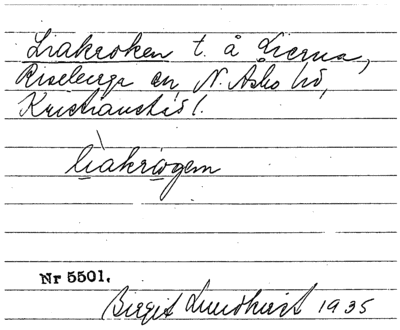 Liakroken t. å Lierna,
Riseberga sn, N. Åsbo hd,
Kristianstads l.
liakrogem
Nr 5501.
Birgit Lundkvist 1935